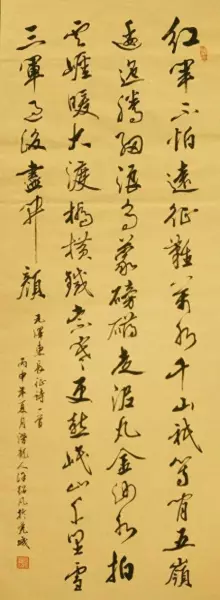 红军不怕远征难万水千山祇等闲五岭
逶迤腾细浪乌蒙磅礴走泥丸金沙水拍
云崖暖大渡桥横铁索寒更喜岷山千里雪
三军过后尽开颜
毛泽东长征诗一首
丙申年夏月潜龙人 于